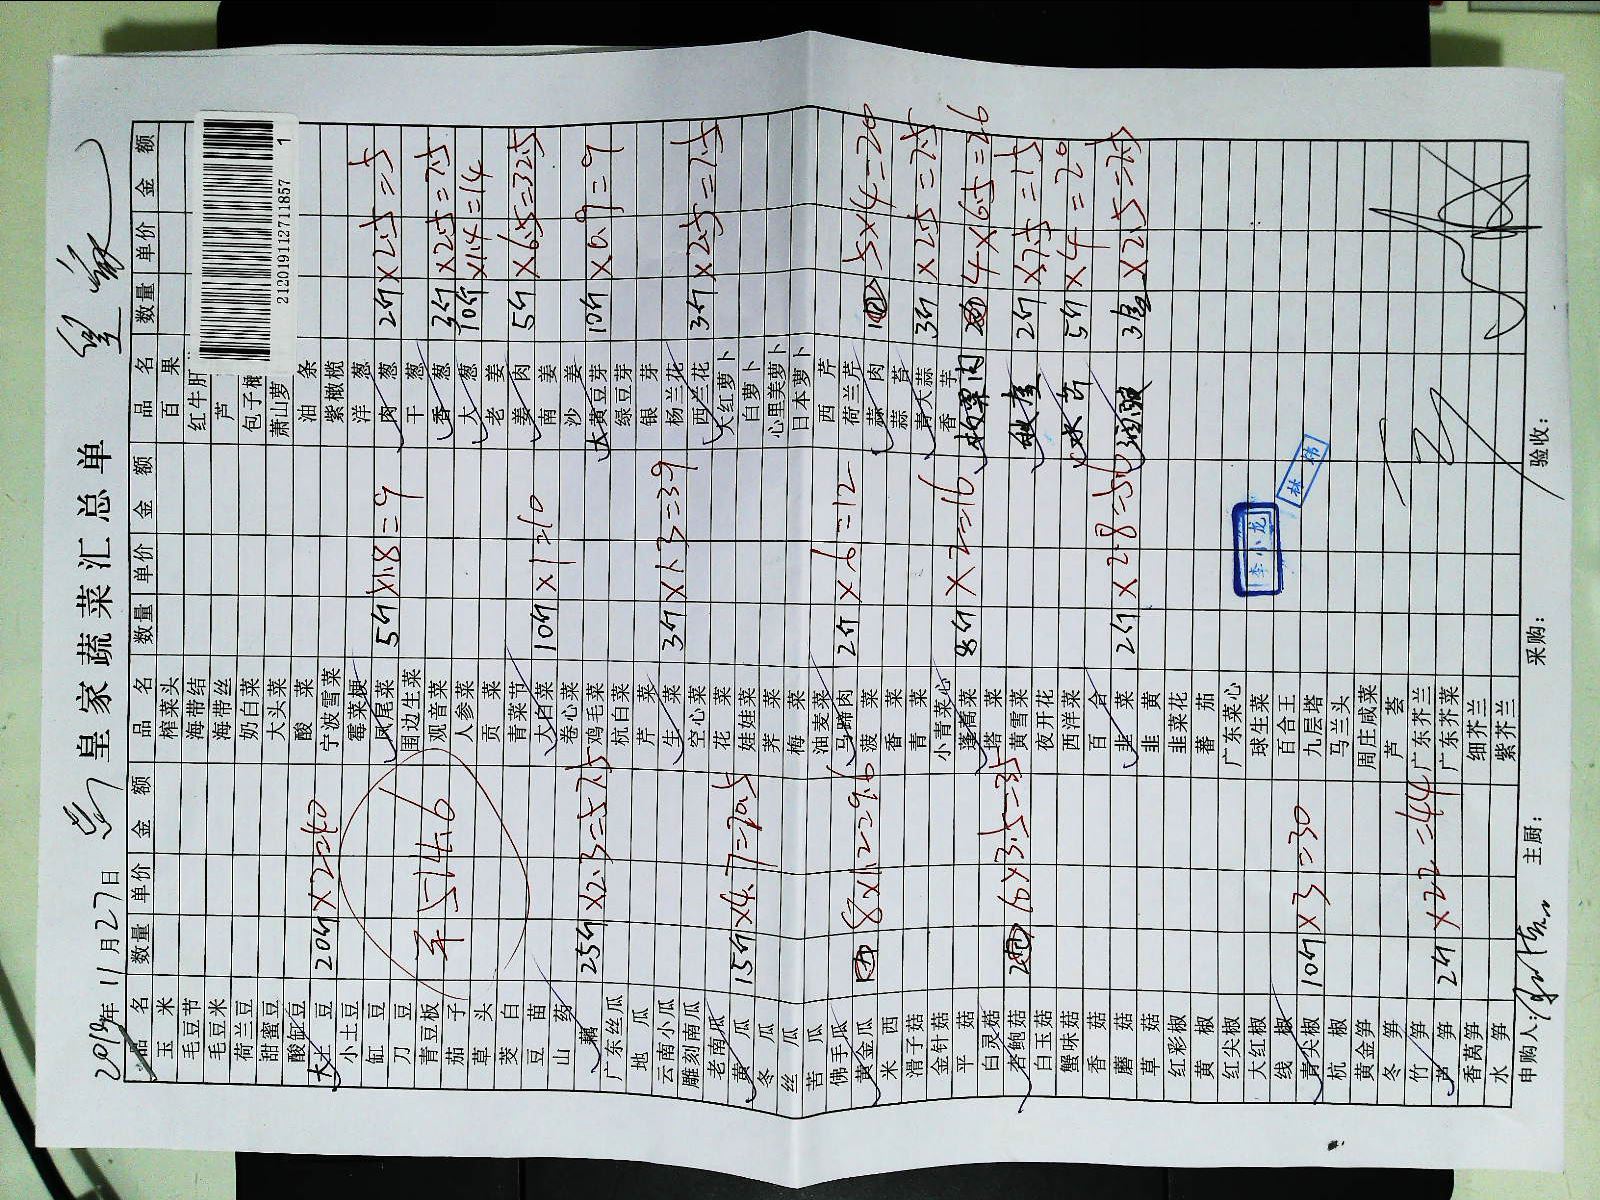 新皇家蔬菜汇总单 堂煮
2019年11月27日
212019112711857 1
品名 数量 单价 金额
玉米
毛豆节
毛豆米
荷兰豆
甜蜜豆
酸豇豆
大土豆 20斤×2=40
小土豆
豇豆
刀豆
青豆板
茄子
草头
茭白
豆苗
山药
514.6
藕 25斤×2.3=57.5
广东丝瓜
地瓜
云南小瓜
雕刻南瓜
老南瓜
黄瓜 15斤×4.7=70.5
冬瓜
丝瓜
苦瓜
佛手瓜
黄金瓜 8×1.2=29.6
米西
滑子菇
金针菇
平菇
白灵菇
老鲍菇 10×3.5=35
白玉菇
蟹味菇
香菇
蘑菇
草菇
红彩椒
黄椒
红尖椒
大红椒
线椒
青尖椒 10斤×3=30
杭椒
黄金笋
冬笋
竹笋
芦笋 2斤×22=44
香莴笋
水笋
品名 数量 单价 金额
榨菜头
海带结
海带丝
奶白菜
大头菜
酸菜
宁波雪菜
霉菜梗
凤尾菜 5斤×1.8=9
围边生菜
观音菜
人参菜
贡菜
青菜节
大白菜 10斤×1=10
卷心菜
鸡毛菜
杭白菜
芹菜
生菜 3斤×13=39
空心菜
花菜
娃娃菜
荠菜
梅菜
油麦菜
马蹄肉 2斤×6=12
菠菜
香菜
青菜
小青菜心
蓬蒿菜 8斤×2=16
塔菜
黄雪菜
夜开花
西洋菜
百合
韭菜 2斤×2.8=5.6
韭黄
韭菜花
蕃茄
广东菜心
球生菜
百合王
九层塔
马兰头
周庄咸菜
芦荟
广东芥兰
广东芥菜
细芥兰
紫芥兰
品名 数量 单价 金额
百果
红牛肝
芦
包子
萧山萝
油条
紫橄榄
洋葱
肉葱 2斤×2.5=5
干葱
香葱 3斤×2.5=7.5
大葱 10斤×1.4=14
老姜
姜肉 5斤×6.5=32.5
南姜
沙姜
大黄豆芽 10斤×0.9=9
绿豆芽
银芽
杨兰花
西兰花 3斤×2.5=7.5
大红萝卜
白萝卜
心里美萝卜
日本萝卜
西芹
荷兰芹
蒜肉 5×4=20
蒜苔
青大蒜 3斤×2.5=7.5
香芋
板栗肉 4×6.5=26
2斤×7.5=15
5斤×4=20
3×2.5=7.5
李小龙
林炜
申购人: 主厨: 采购: 验收: